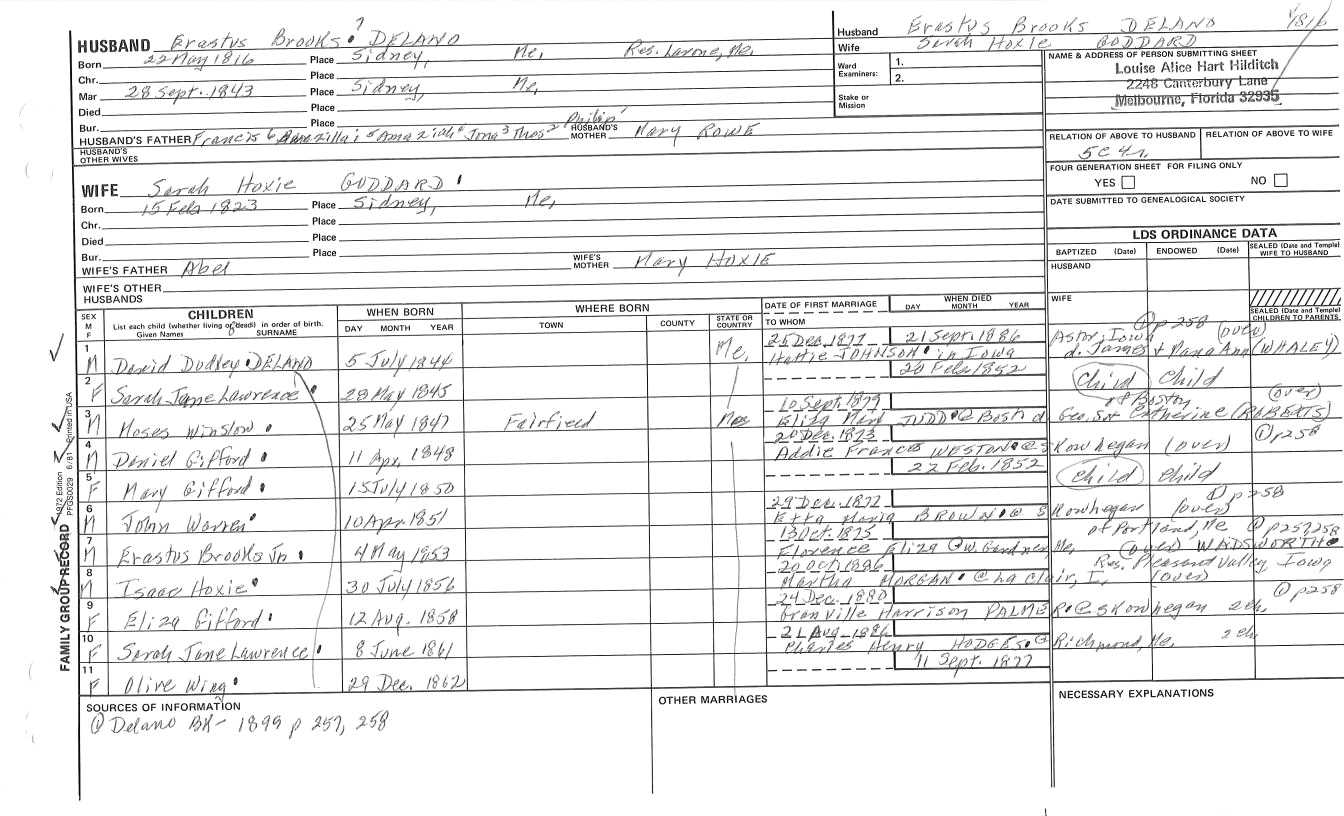 HUSBAND Erastus Brooks 7 DELANO
Born 22 May 1816 Place Sidney, Me, Res. Larone, Me,
Chr. Place
Mar 28 Sept. 1843 Place Sidney, Me,
Died Place
Bur. Place
HUSBAND'S FATHER Francis 6 Amaziah Jona 3 Thos 2 Philip 1 HUSBAND'S MOTHER Mary ROWE
HUSBAND'S OTHER WIVES
WIFE Sarah Hoxie GODDARD
Born 15 Feb 1823 Place Sidney, Me,
Chr. Place
Died Place
Bur. Place
WIFE'S FATHER Abel WIFE'S MOTHER Mary HOXIE
WIFE'S OTHER HUSBANDS
Husband Erastus Brooks DELANO 1816
Wife Sarah Hoxie GODDARD
Ward Examiners: 1.
2.
Stake or Mission
NAME & ADDRESS OF PERSON SUBMITTING SHEET
Louise Alice Hart Hilditch
2248 Canterbury Lane
Melbourne, Florida 32935
RELATION OF ABOVE TO HUSBAND RELATION OF ABOVE TO WIFE
5C 4r.
FOUR GENERATION SHEET FOR FILING ONLY
YES NO
DATE SUBMITTED TO GENEALOGICAL SOCIETY
LDS ORDINANCE DATA
BAPTIZED (Date) ENDOWED (Date) SEALED (Date and Temple) WIFE TO HUSBAND
HUSBAND
WIFE
SEALED (Date and Temple) CHILDREN TO PARENTS
SEX M F CHILDREN WHEN BORN WHERE BORN DATE OF FIRST MARRIAGE WHEN DIED
List each child (whether living or dead) in order of birth. DAY MONTH YEAR TOWN COUNTY STATE OR COUNTRY TO WHOM DAY MONTH YEAR
Given Names 8 SURNAME
1 M David Dudley DELANO 5 July 1844 Me, 25 Dec. 1877 21 Sept. 1886
Hattie JOHNSON in Iowa Astor, Iowa p 258 (over)
d. James + Mana Ann (WHALEY)
2 F Sarah Jane Lawrence 28 May 1845 20 Feb 1852 Child Child
3 M Moses Winslow 25 May 1847 Fairfield Me 10 Sept. 1879
Eliza Mary JUDD @ Bosto d of Boston Geo. S + Catherine (ROBERTS) (over)
4 M Daniel Gifford 11 Apr. 1848 20 Dec. 1873
Addie Frances WESTON @ Skowhegan (over) p 258
5 F Mary Gifford 15 July 1850 22 Feb. 1852 Child Child
6 M John Warren 10 Apr. 1851 29 Dec. 1877
Etta Maria BROWN @ Skowhegan (over) p 258
7 M Erastus Brooks Jr. 4 May 1853 13 Oct. 1875
Florence Eliza @ W. Gardner Me, of Portland, Me (over) WADSWORTH @ p 257, 258
8 M Isaac Hoxie 30 July 1856 20 Oct 1886
Martha MORGAN @ La Clair, I. Res. Pleasant Valley, Iowa (over)
9 F Eliza Gifford 12 Aug. 1858 24 Dec. 1880
Granville Harrison PALMER @ Skowhegan 2 ch. @ p 258
10 F Sarah Jane Lawrence 8 June 1861 21 Aug 1886
Charles Henry HODGES @ Richmond, Me, 2 ch
11 F Olive Wing 29 Dec. 1862 11 Sept. 1877
SOURCES OF INFORMATION
Delano BK- 1899 p 257, 258
OTHER MARRIAGES
NECESSARY EXPLANATIONS
FAMILY GROUP RECORD 1972 Edition PFGS0029 6/81 Printed in USA